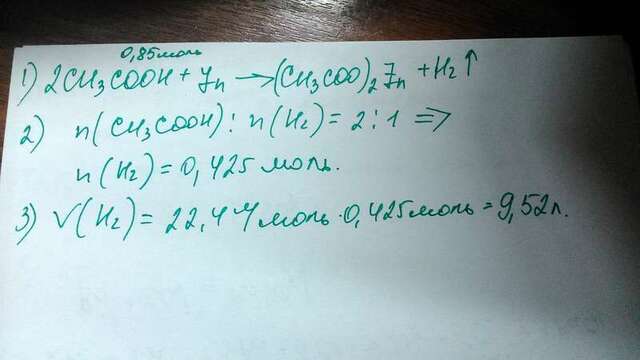 0,85моль
1) 2CH₃COOH + Zn → (CH₃COO)₂Zn + H₂↑
2) n(CH₃COOH) : n(H₂) = 2 : 1 ⇒
n(H₂) = 0,425 моль.
3) V(H₂) = 22,4 л/моль · 0,425моль = 9,52л.